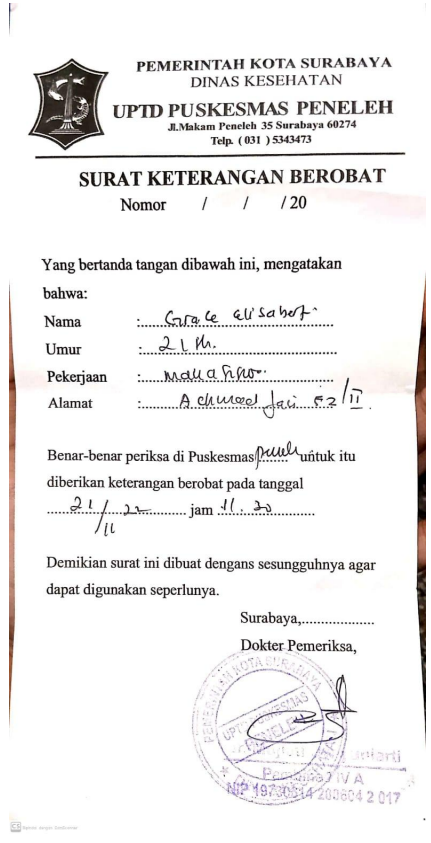 PEMERINTAH KOTA SURABAYA
DINAS KESEHATAN
UPTD PUSKESMAS PENELEH
Jl.Makam Peneleh 35 Surabaya 60274
Telp. ( 031 ) 5343473
SURAT KETERANGAN BEROBAT
Nomor / / / 20
Yang bertanda tangan dibawah ini, mengatakan
bahwa:
Nama : Grace Elisabet
Umur : 21 th.
Pekerjaan : Mahasiswa
Alamat : Achmad Jais 52/II
Benar-benar periksa di Puskesmas Peneleh untuk itu
diberikan keterangan berobat pada tanggal
21/11 22 jam 11.20
Demikian surat ini dibuat dengans sesungguhnya agar
dapat digunakan seperlunya.
Surabaya,...................
Dokter Pemeriksa,
PEMERINTAH KOTA SURABAYA
UPTD PUSKESMAS
PENELEH
IV A